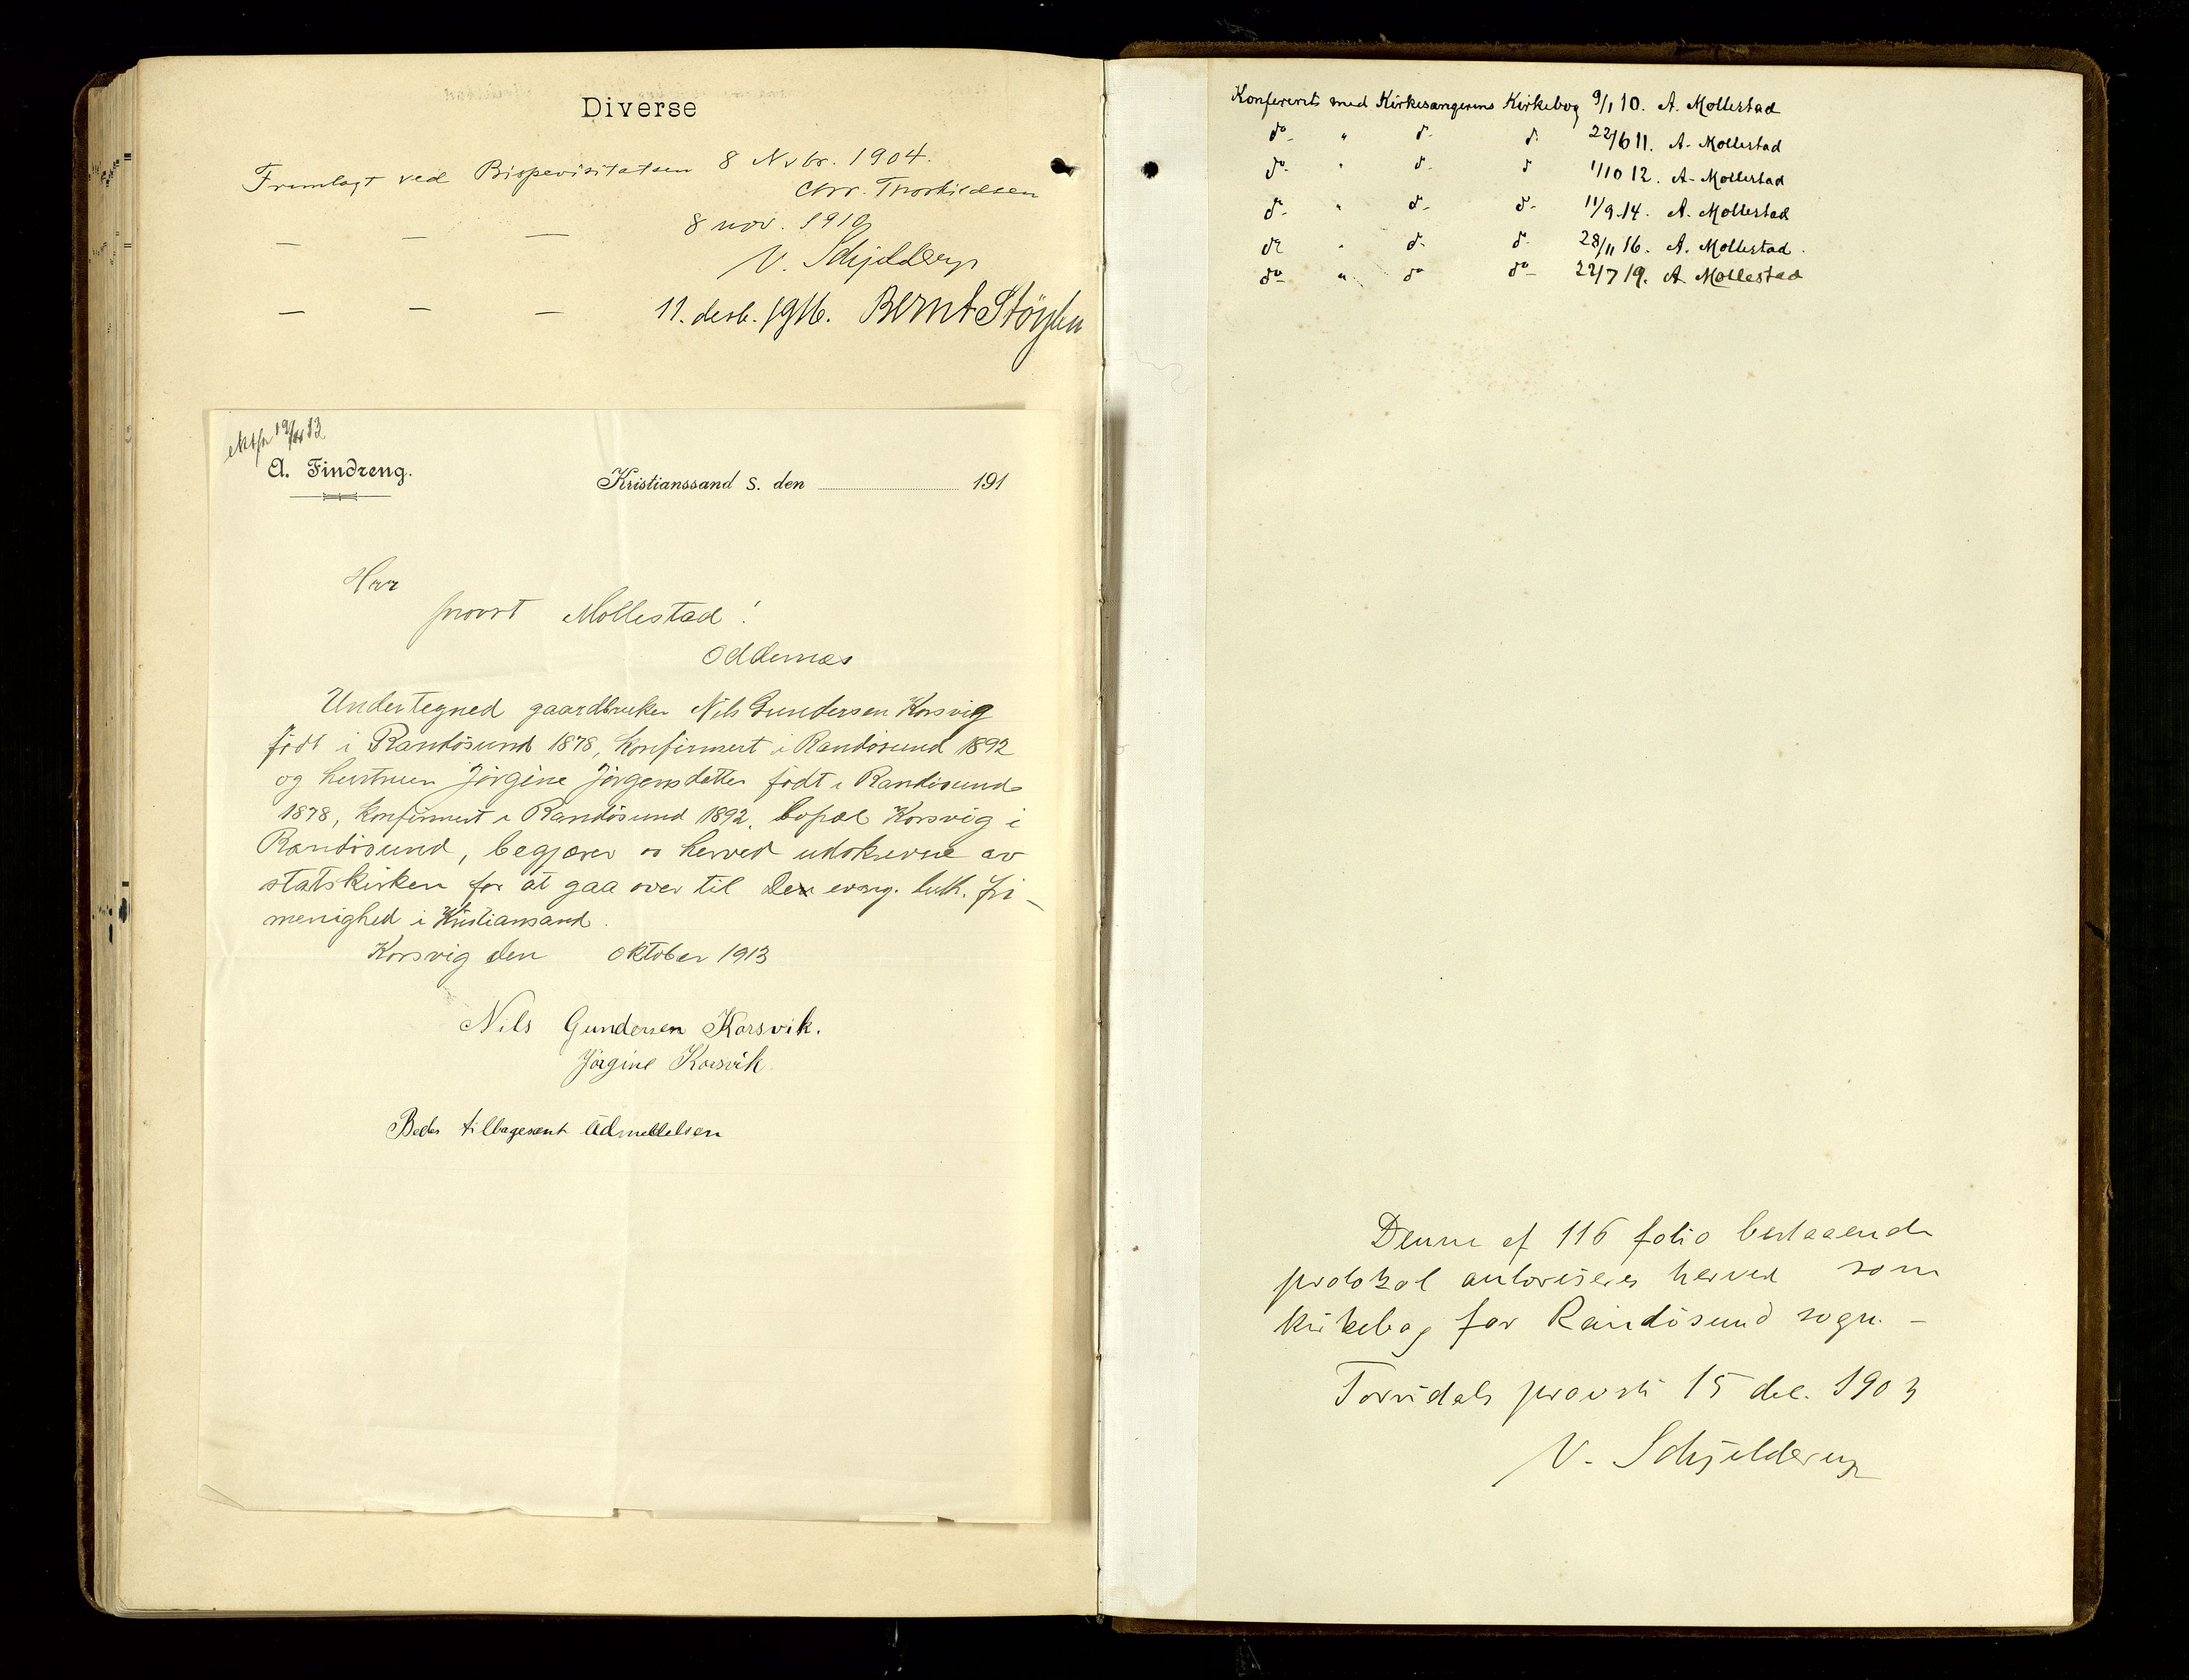 Diverse
Fremlagt ved Bispevisitatsen 8 Nvbr. 1904.
Chr. Thorkildsen
— — — 8 nov. 1910
V. Schjelderup
— — — 11. desb. 1916. Bernt Støylen
19/10 13
A. Findreng.
Kristianssand S. den 191
Herr
provst Mollestad!
Oddernes
Undertegned gaardbruker Nils Gundersen Korsvig
født i Randøsund 1878, konfirmert i Randøsund 1892
og hustruen Jørgine Jørgensdatter født i Randøsund
1878, konfirmert i Randøsund 1892, bopæl Korsvig i
Randøsund, begjærer os herved udskrevne av
statskirken for at gaa over til den evang. luth. fri-
menighed i Kristiansand.
Korsvig den oktober 1913
Nils Gundersen Korsvik.
Jørgine Korsvik
Bedes tilbagesent Udmeldelsen
Konfererets med Kirkesangerens Kirkebog 9/1 10. A. Mollestad
do " d. d. 22/6 11. A. Mollestad
do " d. d 1/10 12. A. Mollestad
d. " d. d. 11/9 14. A. Mollestad
do " d. d. 28/11 16. A. Mollestad.
do " do do 22/7 19. A. Mollestad
Denne af 116 folio bestaaende
protokol autoriseres herved som
kirkebog for Randøsund sogn. –
Torridals provsti 15 dec. 1903
V. Schjelderup